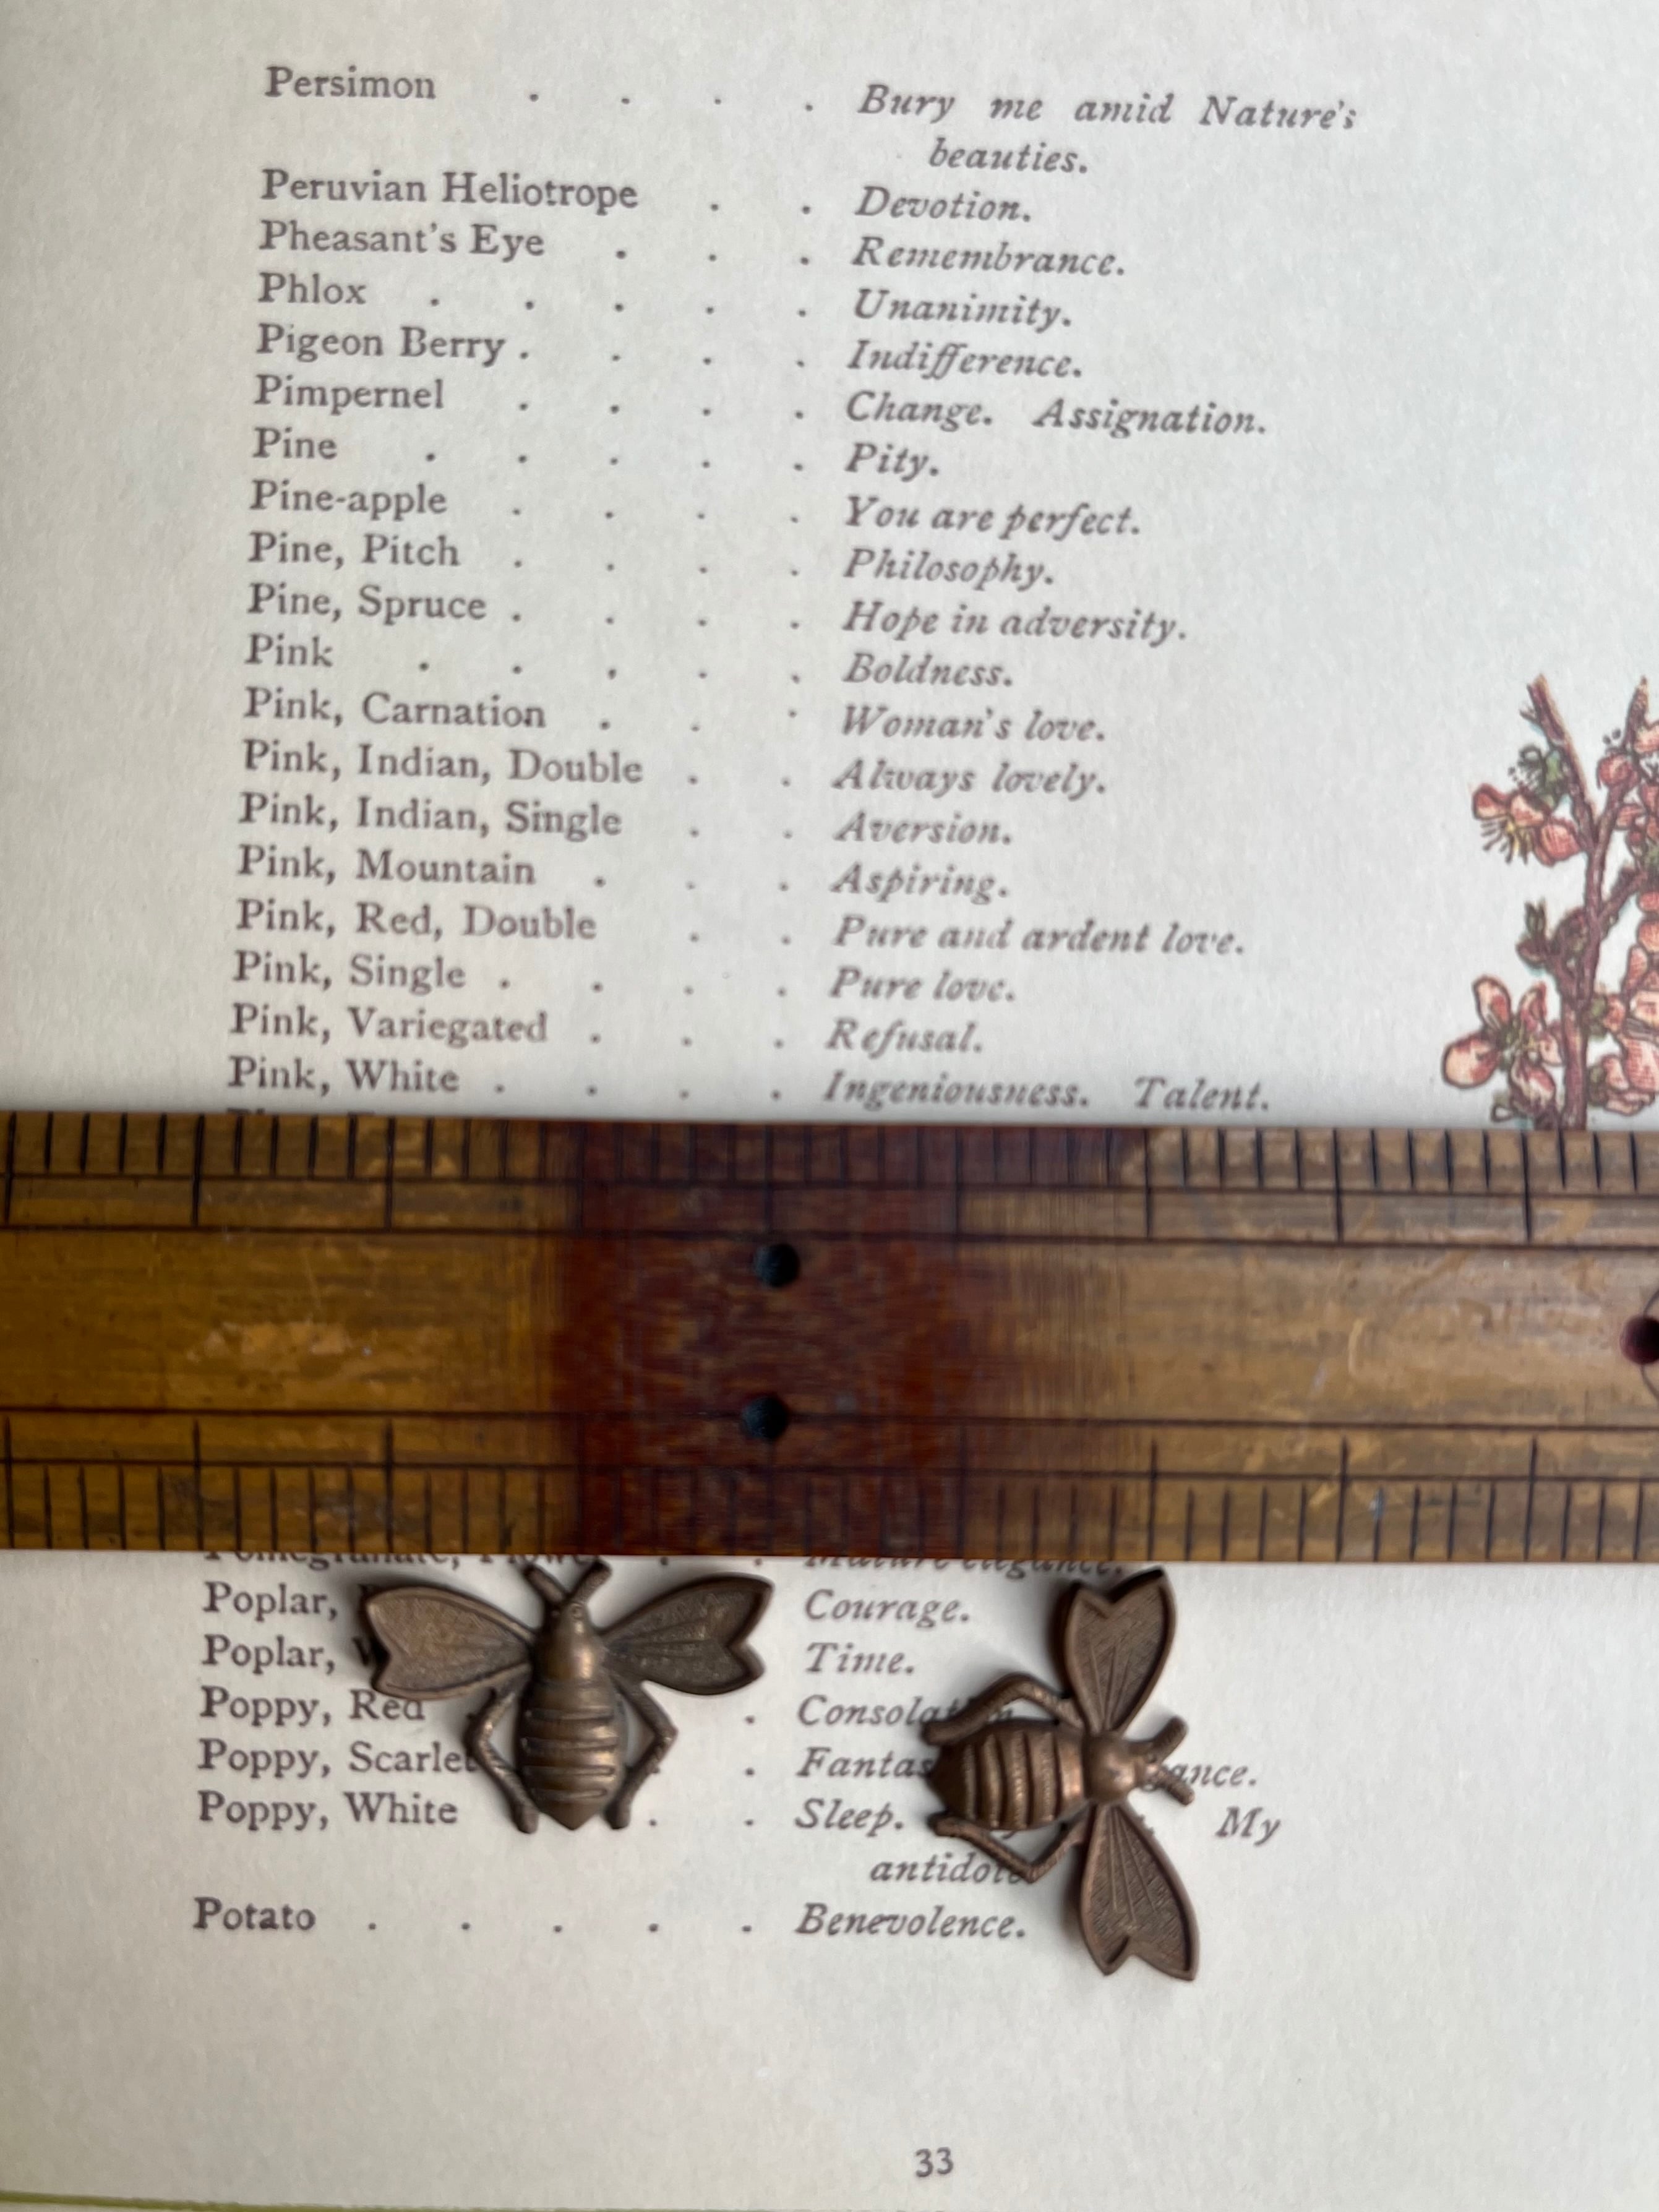 Persimon . . . . Bury me amid Nature's
beauties.
Peruvian Heliotrope . . Devotion.
Pheasant's Eye . . . Remembrance.
Phlox . . . . . Unanimity.
Pigeon Berry . . . . Indifference.
Pimpernel . . . . Change. Assignation.
Pine . . . . . Pity.
Pine-apple . . . . You are perfect.
Pine, Pitch . . . . Philosophy.
Pine, Spruce . . . . Hope in adversity.
Pink . . . . . Boldness.
Pink, Carnation . . . Woman's love.
Pink, Indian, Double . . Always lovely.
Pink, Indian, Single . . Aversion.
Pink, Mountain . . . Aspiring.
Pink, Red, Double . . Pure and ardent love.
Pink, Single . . . . Pure love.
Pink, Variegated . . . Refusal.
Pink, White . . . . Ingeniousness. Talent.
Pomegranate, Flower . . Mature elegance.
Poplar, Courage.
Poplar, Time.
Poppy, Red . Consolation.
Poppy, Scarlet .
Poppy, White . . Sleep. My
Potato . . . . . Benevolence.
33